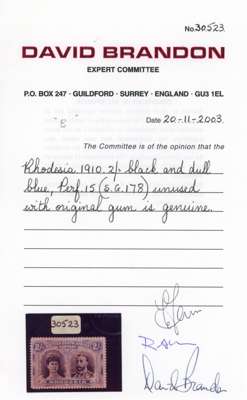 No. 30523
DAVID BRANDON
EXPERT COMMITTEE
P.O. BOX 247 · GUILDFORD · SURREY · ENGLAND · GU3 1EL
"E"
Date 20-11-2003.
The Committee is of the opinion that the
Rhodesia 1910 2/- black and dull
blue, Perf. 15 (S.G.178) unused
with original gum is genuine.
30523
RHODESIA
David Brandon